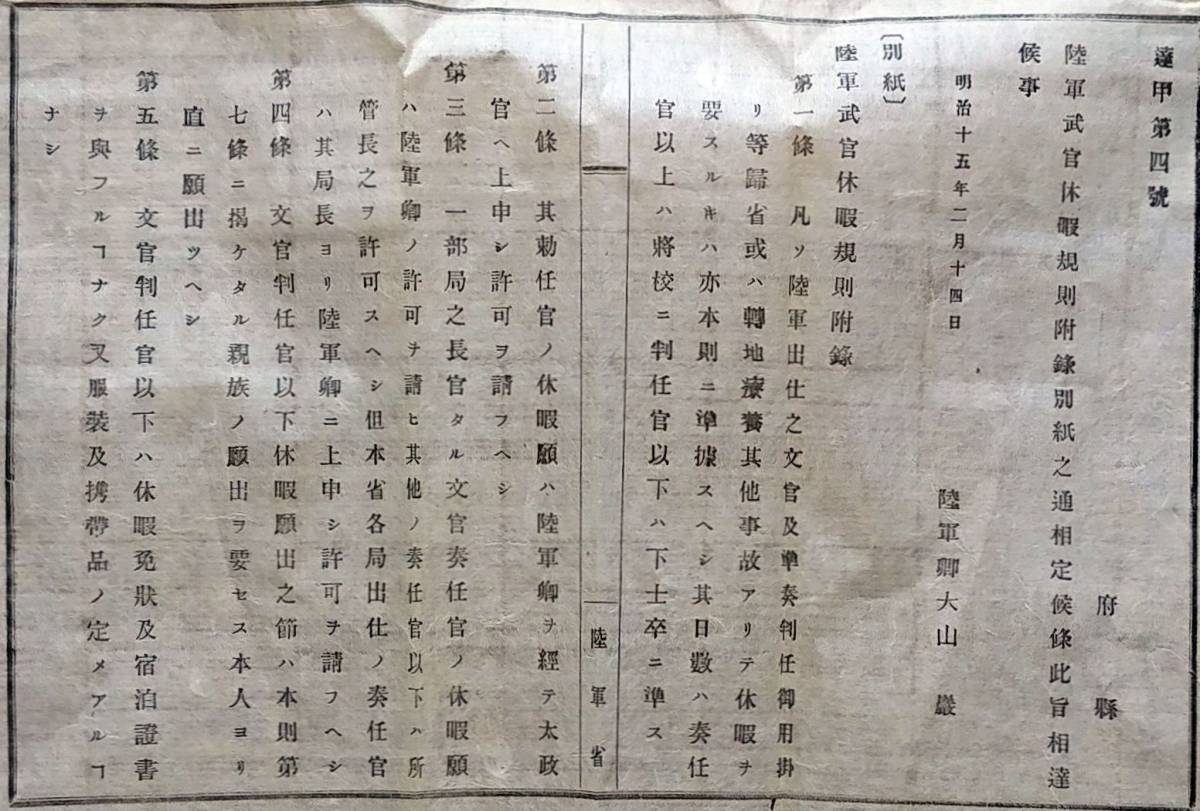 達甲第四號
府縣
陸軍武官休暇規則附錄別紙之通相定候條此旨相達
候事
明治十五年二月十四日
陸軍卿大山巖
〔別紙〕
陸軍武官休暇規則附錄
第一條 凡ソ陸軍出仕之文官及準奏判任御用掛
リ等歸省或ハ轉地療養其他事故アリテ休暇ヲ
要スルキハ亦本則ニ準據スヘシ其日數ハ奏任
官以上ハ將校ニ判任官以下ハ下士卒ニ準ス
陸軍省
第二條 其勅任官ノ休暇願ハ陸軍卿ヲ經テ太政
官ヘ上申シ許可ヲ請フヘシ
第三條 一部局之長官タル文官奏任官ノ休暇願
ハ陸軍卿ノ許可ヲ請ヒ其他ノ奏任官以下ハ所
管長之ヲ許可スヘシ但本省各局出仕ノ奏任官
ハ其局長ヨリ陸軍卿ニ上申シ許可ヲ請フヘシ
第四條 文官判任官以下休暇願出之節ハ本則第
七條ニ揭ケタル親族ノ願出ヲ要セス本人ヨリ
直ニ願出ツヘシ
第五條 文官判任官以下ハ休暇免狀及宿泊證書
ヲ與フルヿナク又服裝及携帶品ノ定メアルヿ
ナシ